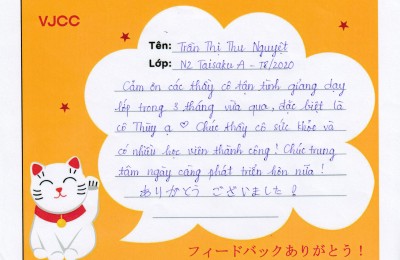 VJCC
Tên: Trần Thị Thu Nguyệt
Lớp: N2 Taisaku A - T8/2020
Cảm ơn các thầy cô tận tình giảng dạy
lớp trong 3 tháng vừa qua, đặc biệt là
cô Thủy ạ ♡ Chúc thầy cô sức khỏe và
có nhiều học viên thành công! Chúc trung
tâm ngày càng phát triển hơn nữa!
ありがとう ございました!
フィードバックありがとう!